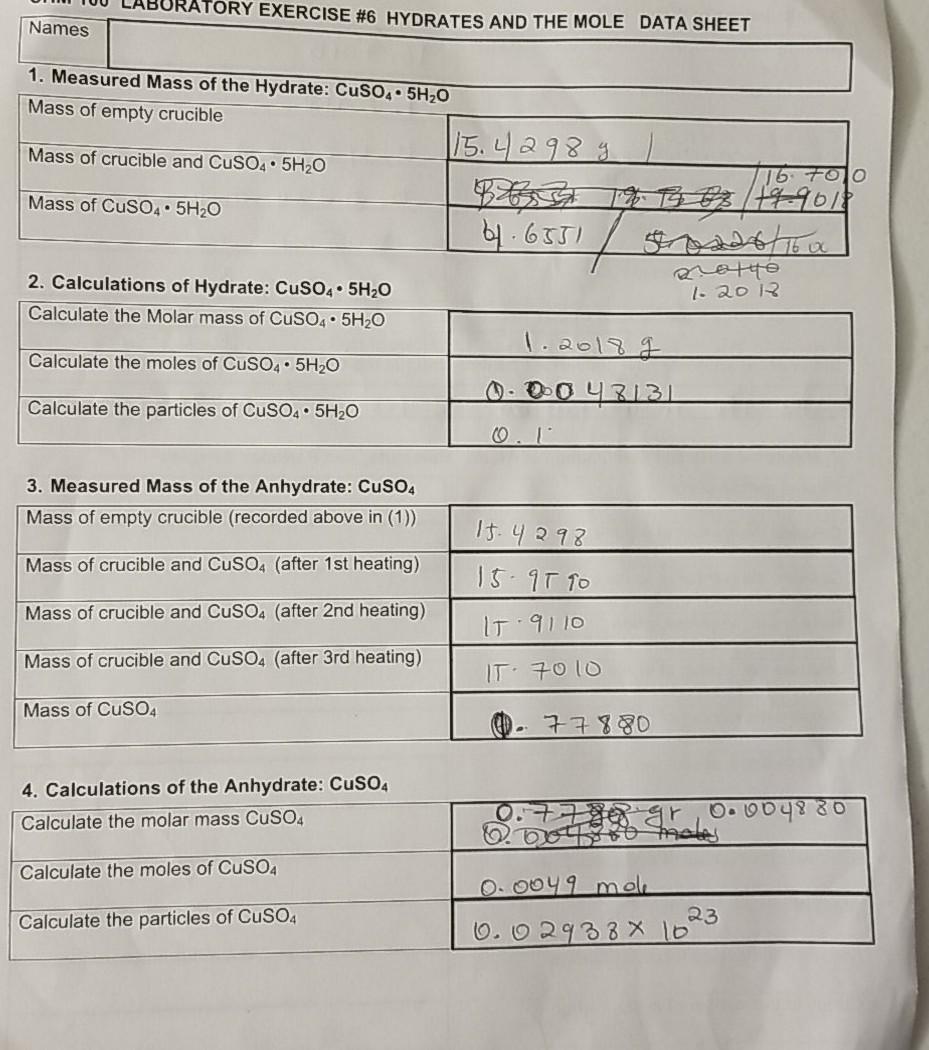 LABORATORY EXERCISE #6 HYDRATES AND THE MOLE DATA SHEET
Names
1. Measured Mass of the Hydrate: CuSO₄• 5H₂O
Mass of empty crucible
15.4298 g
Mass of crucible and CuSO₄ • 5H₂O
16.7010
17.9018
Mass of CuSO₄ • 5H₂O
.6551
1.2018
2. Calculations of Hydrate: CuSO₄• 5H₂O
Calculate the Molar mass of CuSO₄ • 5H₂O
1.2018 g
Calculate the moles of CuSO₄ • 5H₂O
0.0048131
Calculate the particles of CuSO₄ • 5H₂O
0.1
3. Measured Mass of the Anhydrate: CuSO₄
Mass of empty crucible (recorded above in (1))
15.4298
Mass of crucible and CuSO₄ (after 1st heating)
15.9590
Mass of crucible and CuSO₄ (after 2nd heating)
15.9110
Mass of crucible and CuSO₄ (after 3rd heating)
15.7010
Mass of CuSO₄
0.77880
4. Calculations of the Anhydrate: CuSO₄
Calculate the molar mass CuSO₄
gr 0.004880
0.004880 moles
Calculate the moles of CuSO₄
0.0049 mole
Calculate the particles of CuSO₄
0.02938 × 10²³